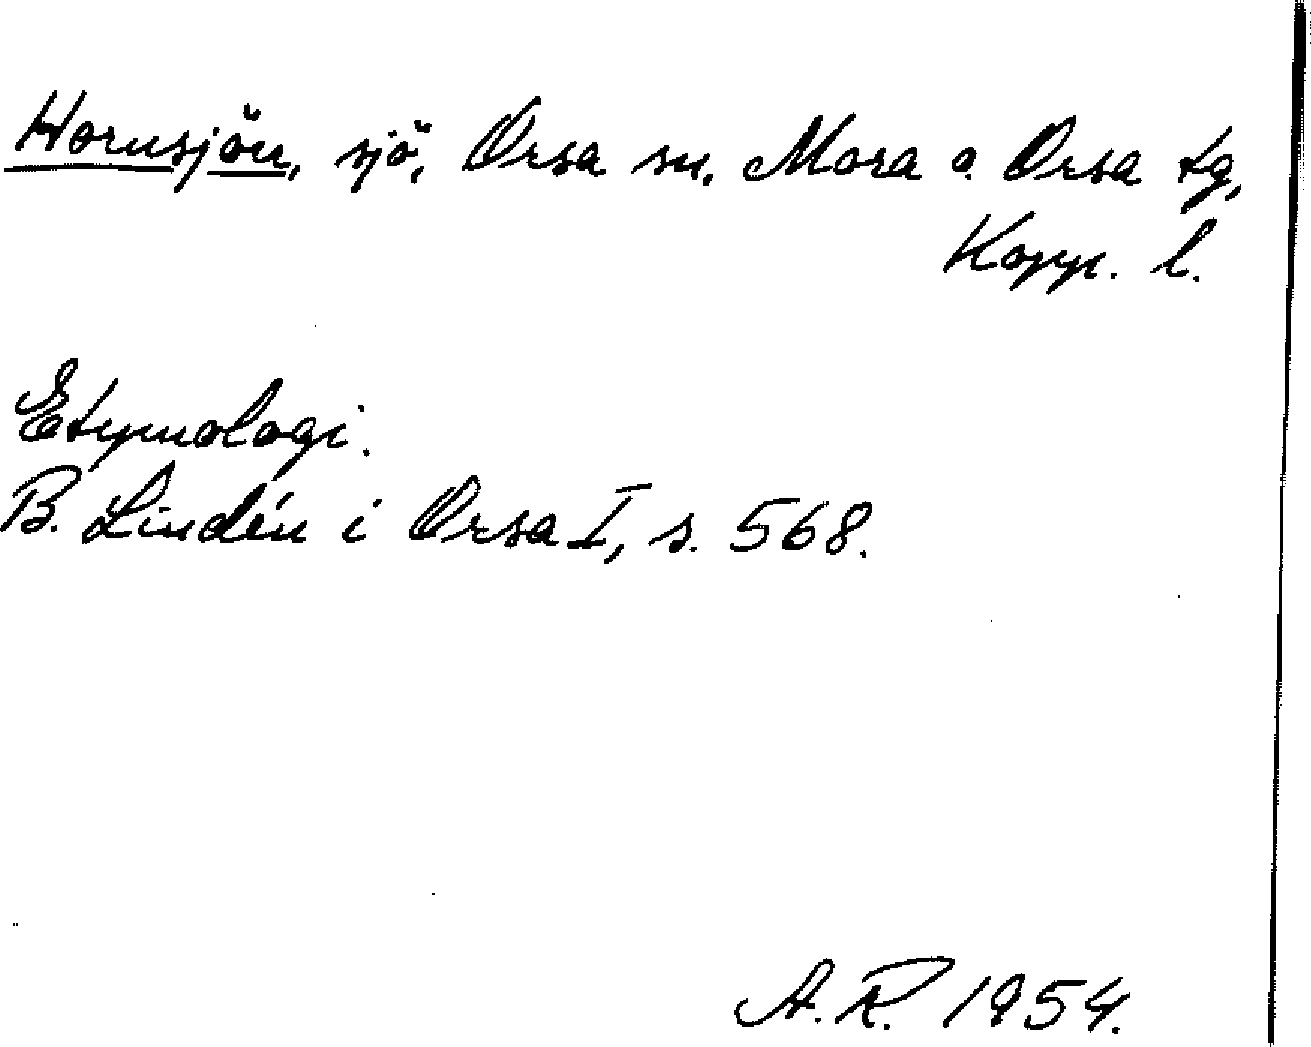 Hornsjön, sjö, Orsa sn. Mora o. Orsa tg,
Kopp. l.
Etymologi.
B. Lindén i Orsa I, s. 568.
A.R. 1954.